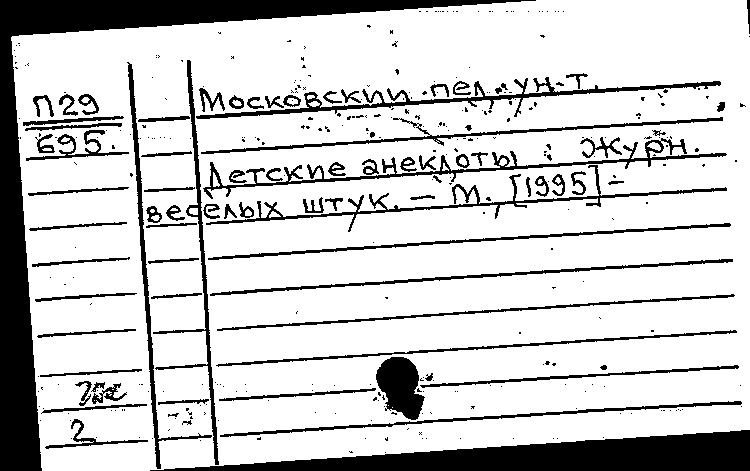 П29
695.
Московский пед. ун-т.
Детские анекдоты : Журн.
весёлых штук. — М., [1995] -
2